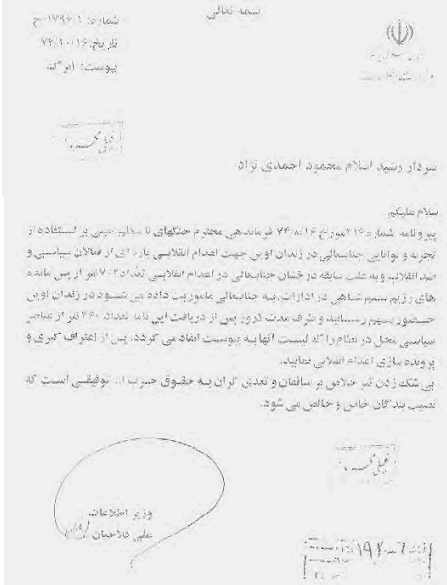 بسمه تعالی
شماره: ۱
تاریخ: ۷۴/۱۰/۱۶
پیوست:
سردار رشید اسلام محمود احمدی نژاد
سلام علیکم
پیرو نامه شماره مورخ ۷۴/۸/۱۶ فرماندهی محترم جنگهای نا منظم مبنی بر استفاده از
تجربه و توانایی جنابعالی در زندان اوین جهت اعدام انقلابی پاره ای از فعالان سیاسی و
ضد انقلاب و به علت سابقه درخشان جنابعالی در اعدام انقلابی تعداد نفر از پس مانده
های رژیم ستم شاهی در ادارات، به جنابعالی ماموریت داده می شود در زندان اوین
حضور بهم رسانید و ظرف مدت روز پس از دریافت این نامه تعداد نفر از عناصر
سیاسی مخل در نظام را که لیست آنها به پیوست ایفاد می گردد، پس از اعتراف گیری و
پرونده سازی اعدام انقلابی نمایید.
بی شک زدن تیر خلاص بر منافقان و تعدی گران به حقوق حزب ا... توفیقی است که
نصیب بندگان خاص و خالص می شود.
خیلی محرمانه
وزیر اطلاعات
علی فلاحیان